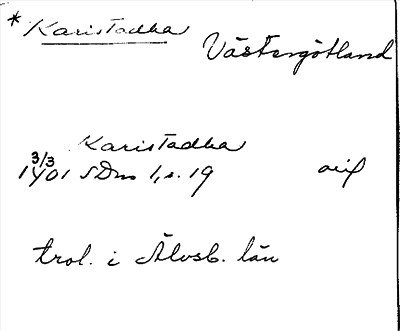 * Karistadha
Västergötland
Karistadha
3/3
1401 SDns 1, s. 19 avif
trol. i Älvsb. län